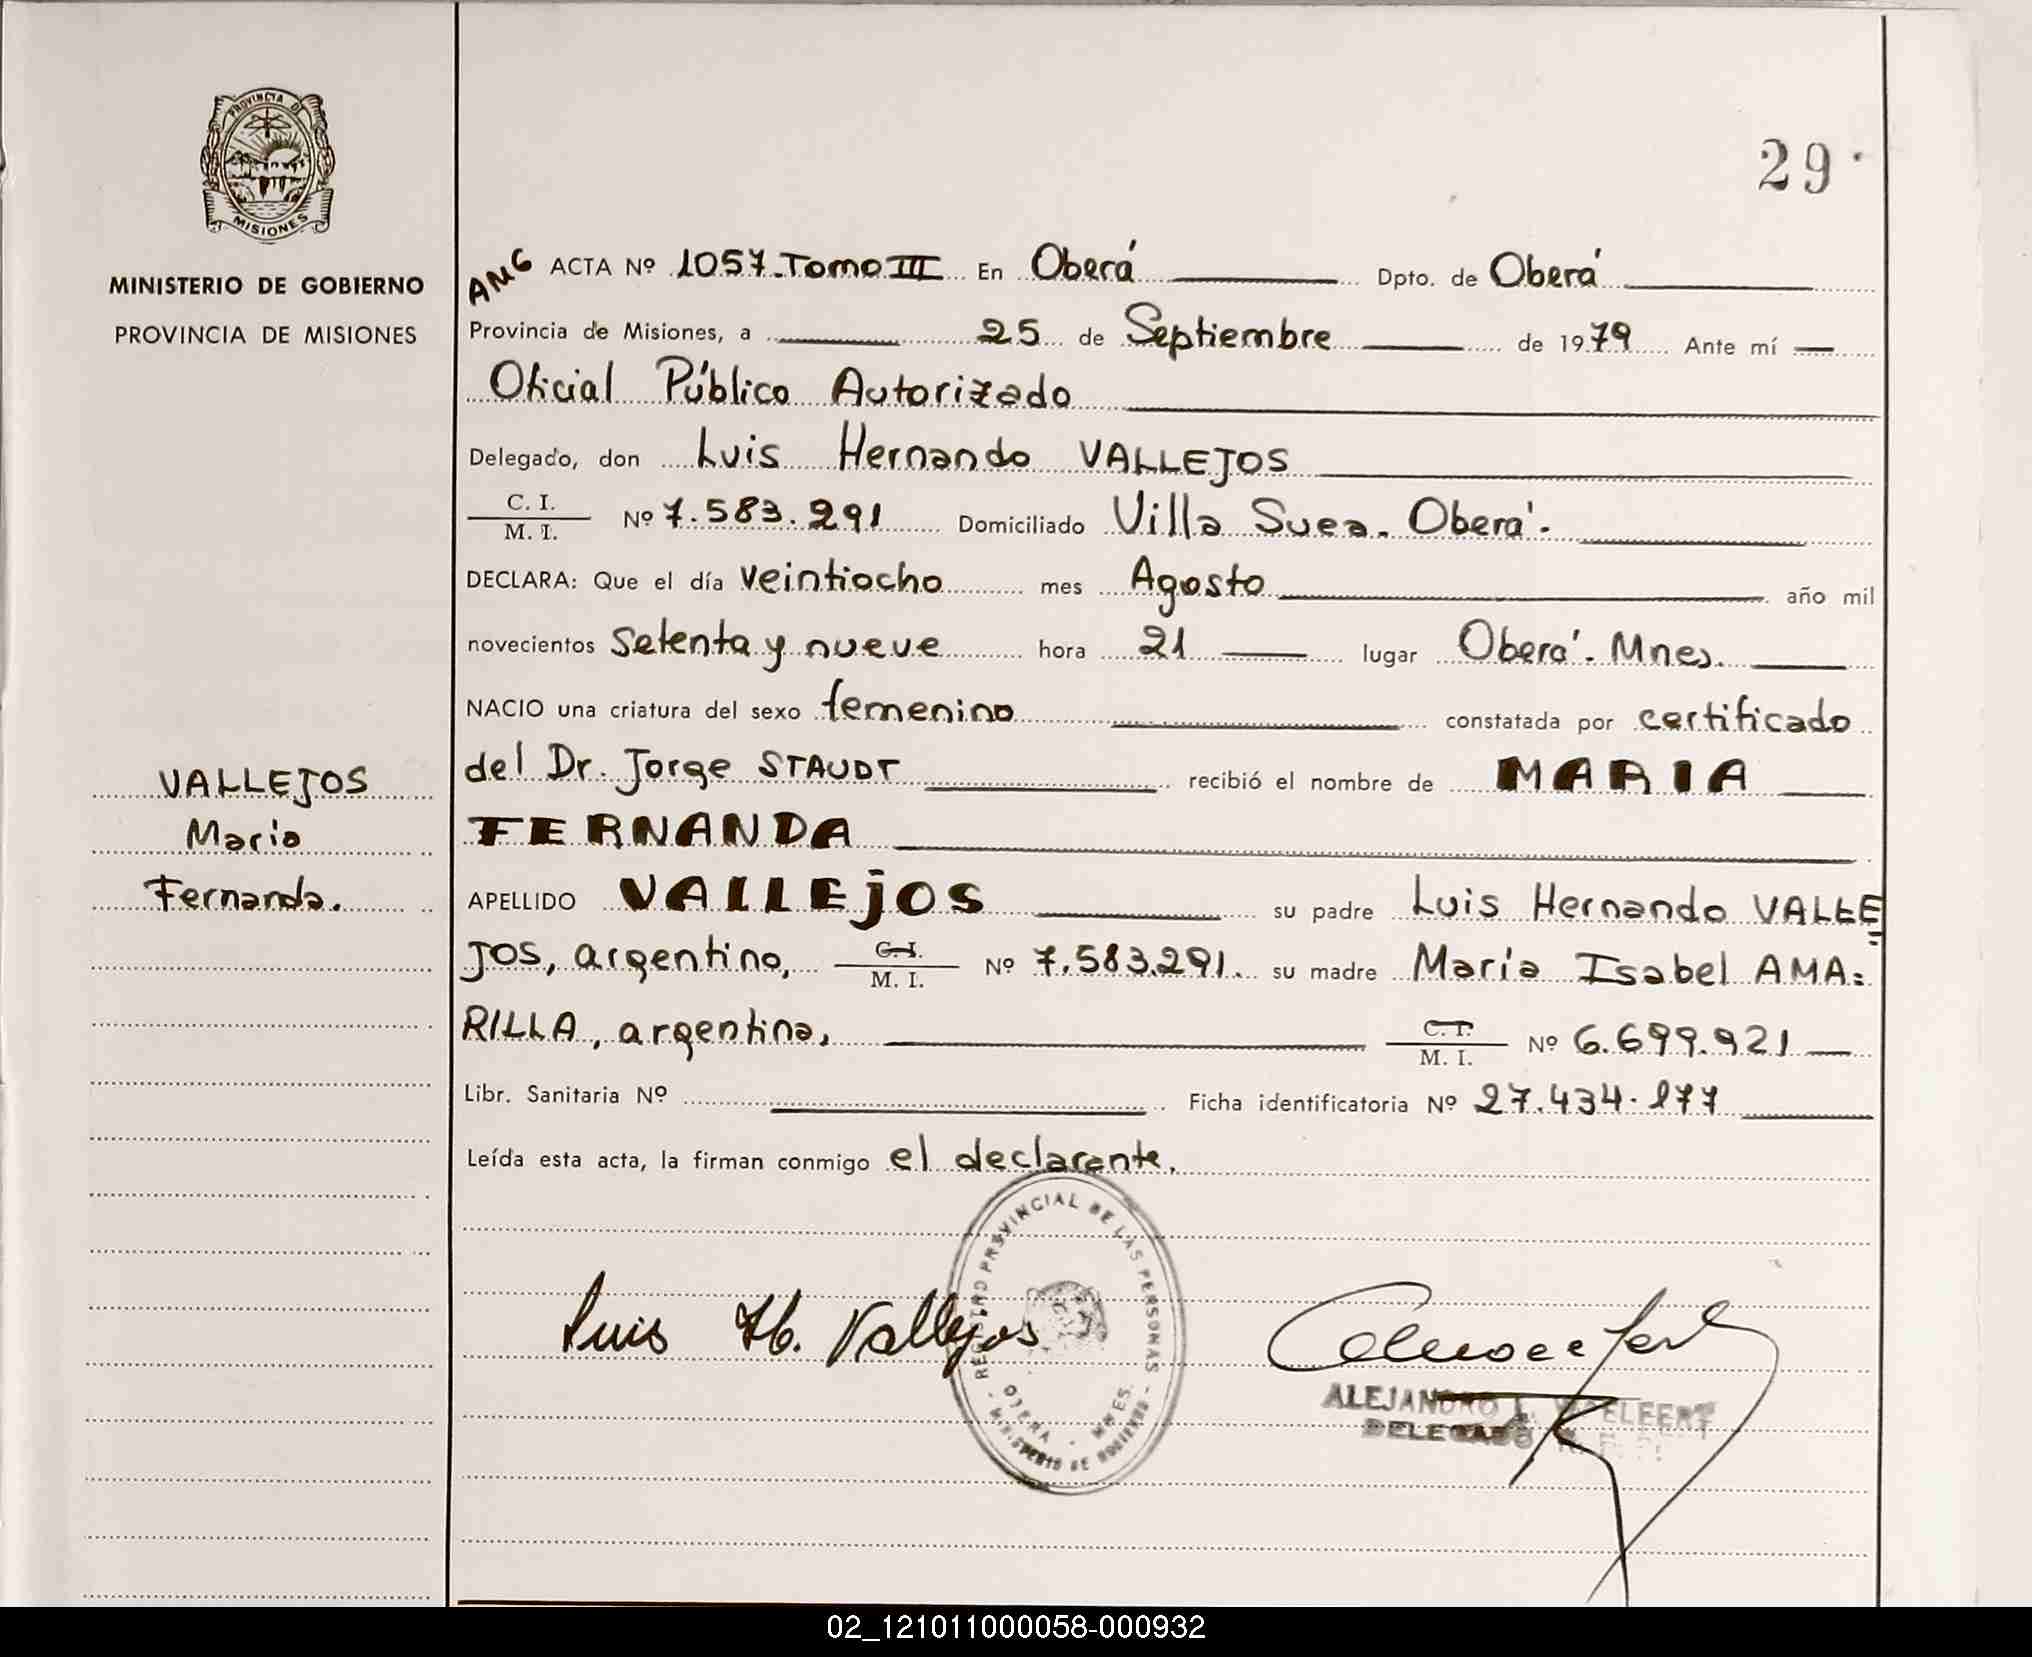 PROVINCIA DE
MISIONES
MINISTERIO DE GOBIERNO
PROVINCIA DE MISIONES
VALLEJOS
Maria
Fernanda.
29
AMG ACTA Nº 1057 Tomo III En Oberá Dpto. de Oberá
Provincia de Misiones, a 25 de Septiembre de 1979 Ante mí
Oficial Público Autorizado
Delegado, don Luis Hernando VALLEJOS
C. I.
M. I. Nº 7.583.291 Domiciliado Villa Suea. Oberá.
DECLARA: Que el día veintiocho mes Agosto año mil
novecientos setenta y nueve hora 21 lugar Oberá. Mnes.
NACIO una criatura del sexo femenino constatada por certificado
del Dr. Jorge STAUDT recibió el nombre de MARIA
FERNANDA
APELLIDO VALLEJOS su padre Luis Hernando VALLE=
JOS, argentino, C. I. M. I. Nº 7.583.291. su madre María Isabel AMA=
RILLA, argentina, C. I. M. I. Nº 6.699.921
Libr. Sanitaria Nº Ficha identificatoria Nº 27.434.177
Leída esta acta, la firman conmigo el declarante.
REGISTRO PROVINCIAL DE LAS PERSONAS
OBERA - MNES.
MINISTERIO DE GOBIERNO
Luis H. Vallejos
ALEJANDRO L.
DELEGADO
02_121011000058-000932